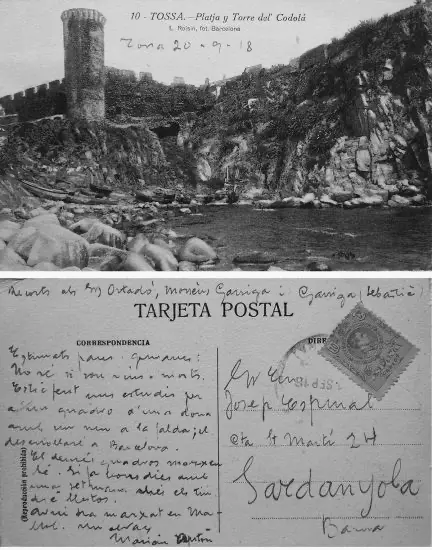 10 - TOSSA.-Platja y Torre del' Codolá
L. Roisin, fot. Barcelona
Tossa 20-9-18
Records als Ortadó, Mossèn Garriga i Garriga (Sebastià)
TARJETA POSTAL
CORRESPONDENCIA
DIRE
Estimats pares i germanes:
No sé si sou vius o morts.
Estic fent uns estudis per
altre quadro d'una dona
amb un nen a la falda, el
desenrotllaré a Barcelona.
El demés quadros marxen
bé. Si fa bons dies amb
una setmana més els tin
dré llestos.
marxat en Ma
Marian
(Reproducción prohibida)
SEP 18
Josep Espinal
Cta St Martí 24
Sardanyola
Barna